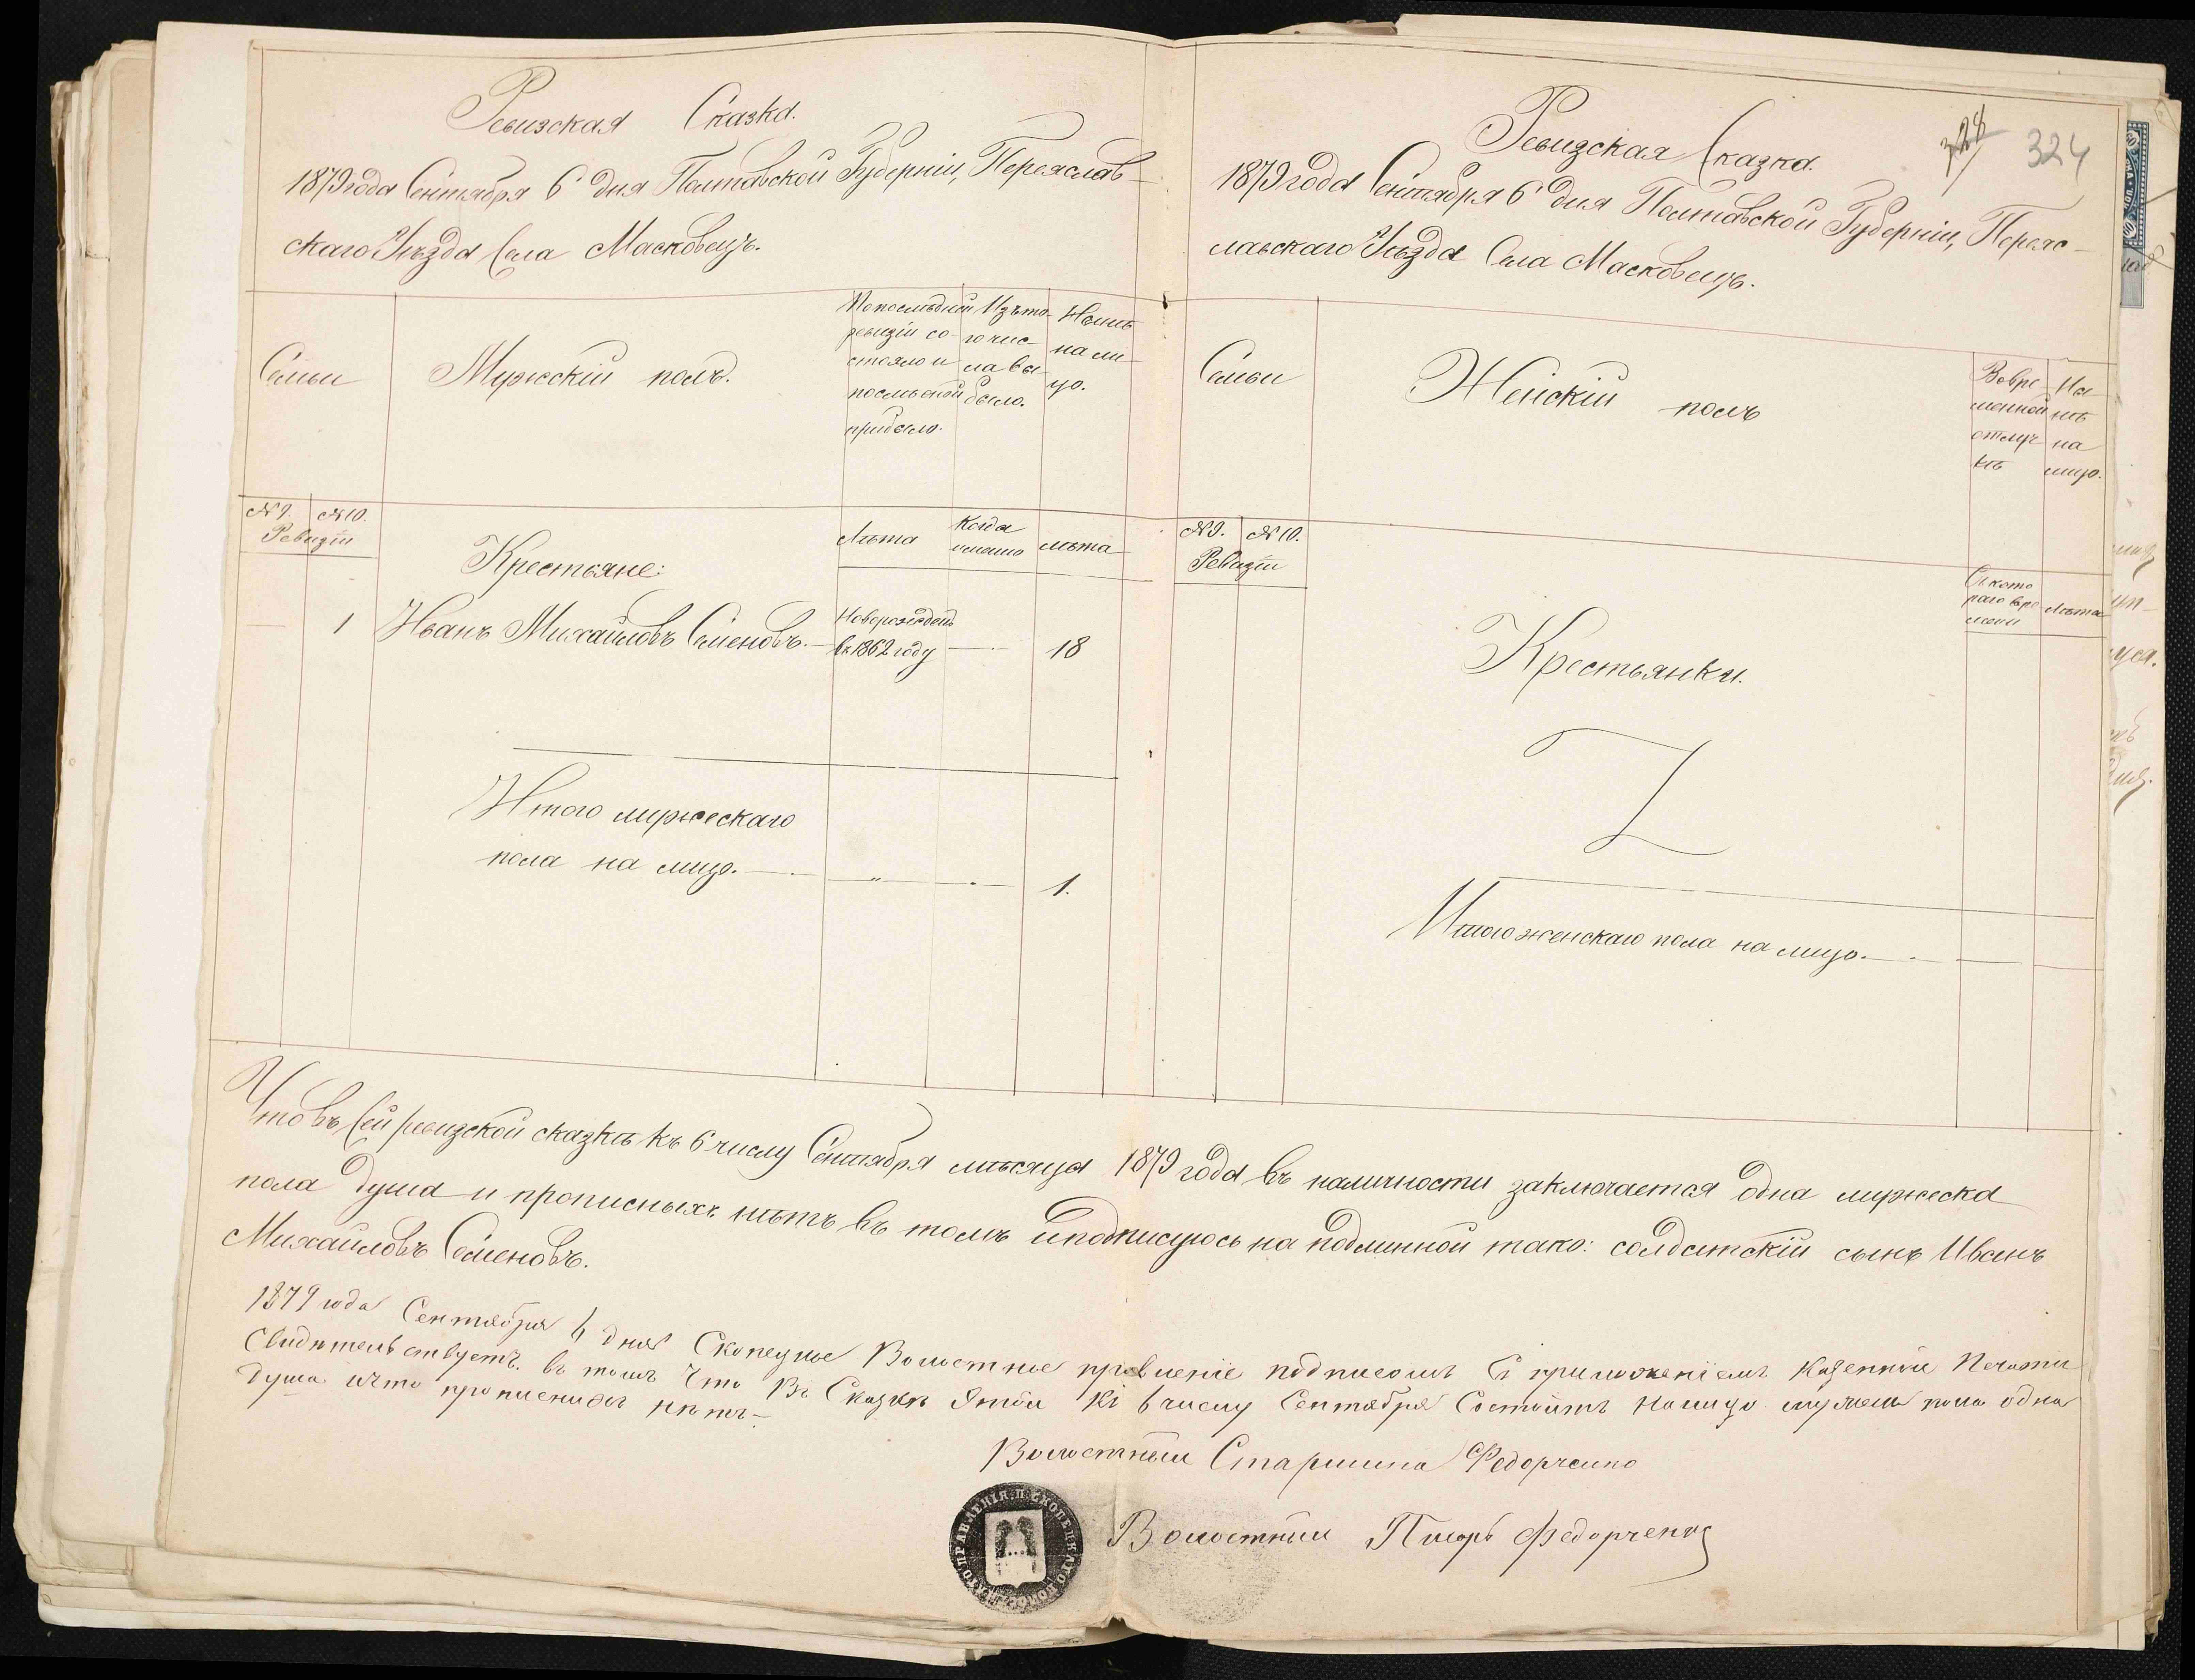 Ревизская Сказка.
1879 года Сентября 6 дня Полтавской Губерніи, Переяслав-
скаго Уѣзда Села Масковецъ.
Семьи
Мужескій полъ.
По послѣдней
ревизіи со-
стояло и
послѣ оной
прибыло.
Изъ то-
го чис-
ла вы-
было.
Нынѣ
на ли-
цо.
№ 9. № 10.
Ревизіи
Крестьяне:
Лѣта
Когда
именно
лѣта
1 Иванъ Михайловъ Семеновъ. —
Новорожденъ
въ 1862 году — 18
Итого мужескаго
пола на лицо. — . — „ — . — 1.
Ревизская Сказка.
328 324
1879 года Сентября 6 дня Полтавской Губерніи, Переяс-
лавскаго Уѣзда Села Масковецъ.
Семьи
Женскій полъ
Во вре-
менной
отлуч
кѣ
Ны-
нѣ
на
лицо.
№ 9. № 10.
Ревизіи
Съ кото
раго вре
мени
Лѣта
Крестьянки.
Итого женскаго пола на лицо. — . —
Что въ сей ревизской сказкѣ къ 6 числу Сентября мѣсяца 1879 года въ наличности заключается одна мужеска
пола душа и прописныхъ нѣтъ въ томъ и подписуюсь на подлинной тако: солдатскій сынъ Иванъ
Михайловъ Семеновъ.
1879 года Сентября 6 дня Скопецкое Волостное правленіе подписомъ съ приложеніемъ казенной Печати
Свидѣтельствуетъ въ томъ Что Въ Сказкѣ Этой къ 6 числу Сентября Состоитъ на лицо мужеска пола одна
душа и что прописныхъ нѣтъ. —
Волостный Старшина Федорченко
Волостный Писарь Федорченко